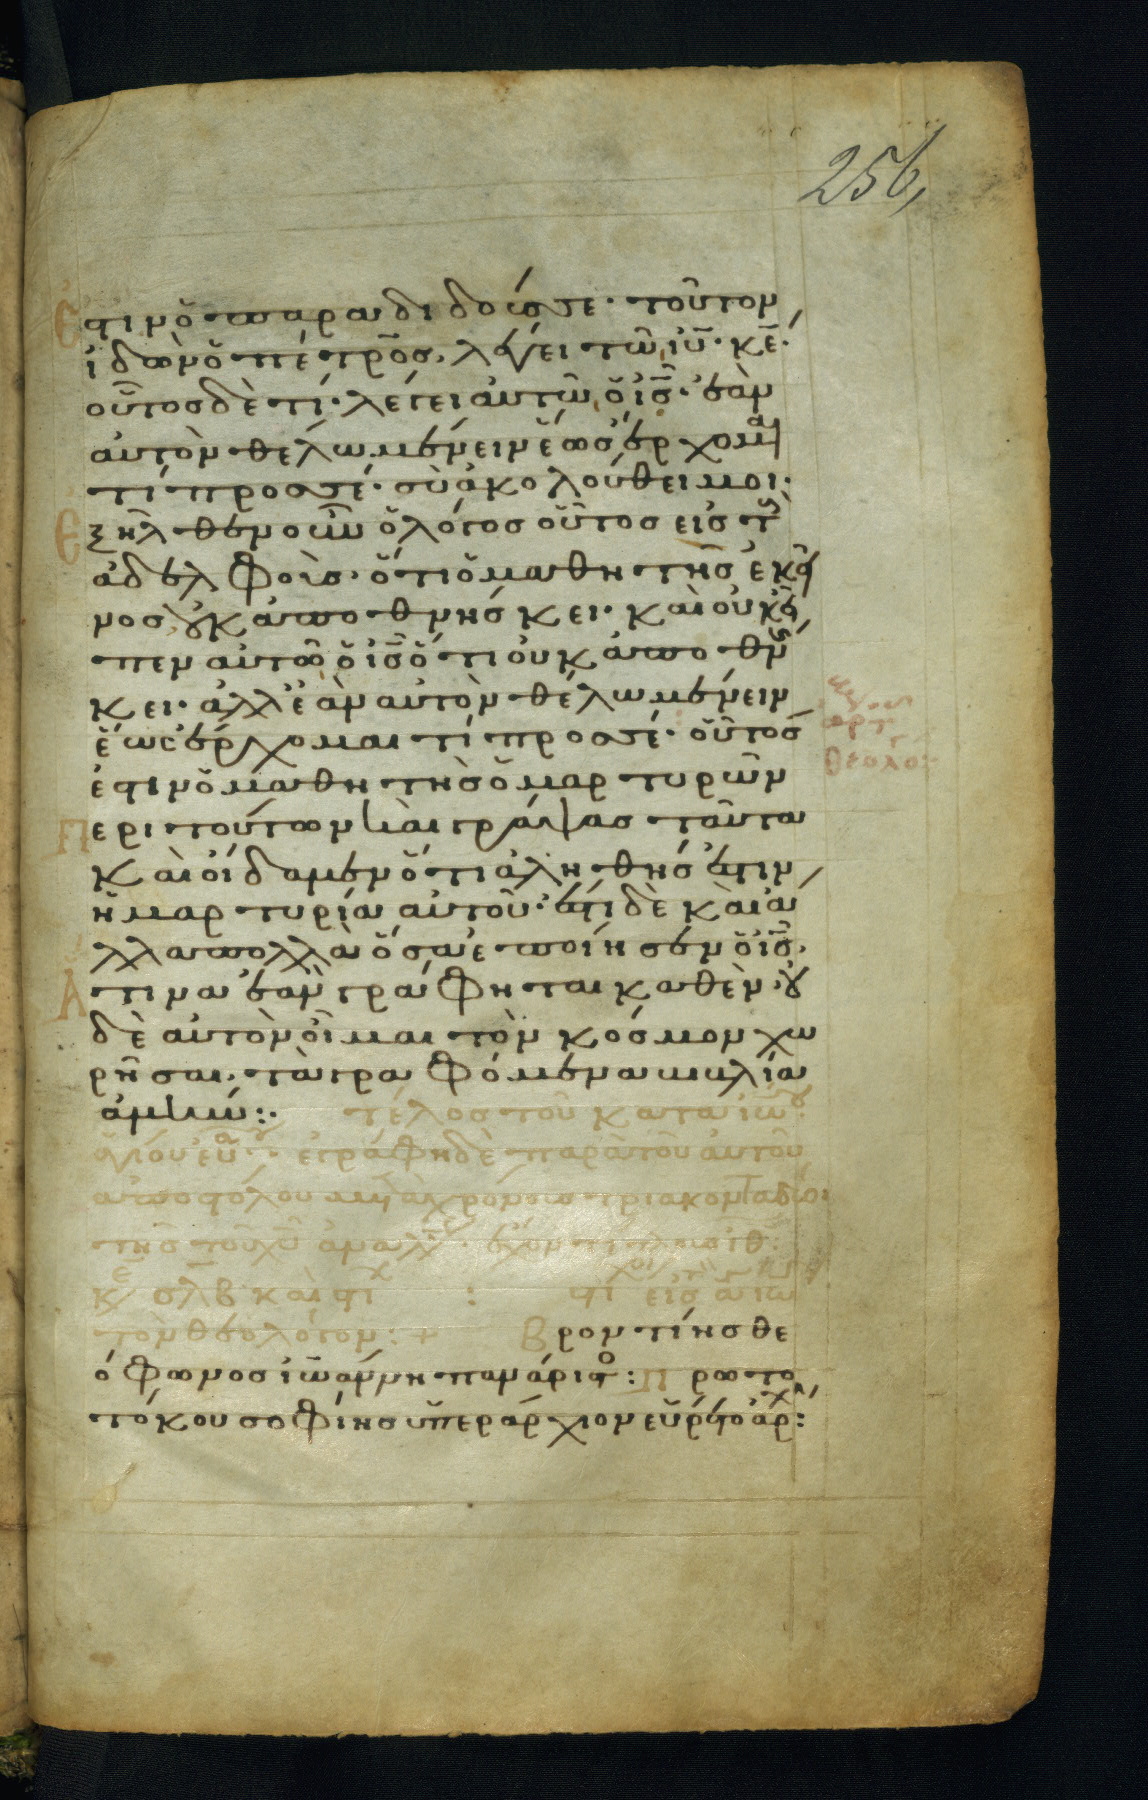 256,
ἐστιν ὁ παραδιδούς σε· τοῦτον
ἰδὼν ὁ πέτρος, λέγει τῶ ιυ̅· κε̅·
οὗτος δὲ τί· λέγει αὐτῶ ὁ ις̅· ἐὰν
αὐτὸν θέλω μένειν ἕως ἔρχομαι
τί πρὸς σέ· σὺ ἀκολούθει μοι·
Εξῆλθεν οὖν ὁ λόγος οὗτος εἰς τοὺς
ἀδελφοὺς· ὅτι ὁ μαθητὴς ἐκεῖ
νος οὐκ ἀποθνήσκει· καὶ οὐκ εἶ
πεν αὐτῶ ὁ ις̅ ὅτι οὐκ ἀποθνήσ
κει· ἀλλ' ἐὰν αὐτὸν θέλω μένειν
ἕως ἔρχομαι τί πρὸς σέ· οὗτός
ἐστιν ὁ μαθητὴς ὁ μαρτυρῶν
Περὶ τούτων καὶ γράψας ταῦτα
καὶ οἴδαμεν ὅτι ἀληθής ἐστιν
ἡ μαρτυρία αὐτοῦ· ἔστι δὲ καὶ ἄ
λλα πολλὰ ὅσα ἐποίησεν ὁ ις̅·
Ἅτινα ἐὰν γράφηται καθὲν· οὐ
δὲ αὐτὸν οἶμαι τὸν κόσμον χω
ρῆσαι· τὰ γραφόμενα βιβλία
ἀμήν:· τέλος τοῦ κατὰ ιω̅
ἁγίου εὐ · ἐγράφη δὲ παρὰ τοῦ αὐτοῦ
ἀποστόλου μετὰ χρόνους τριάκοντα δύο
τῆς τοῦ χυ̅ ἀναλή
σλβ καὶ στι : στι εἰς τὸν ιω̅
τὸν θεολόγον: + Βροντίης θε
όφωνος ἰωάννη πανάριστο: Πρωτο
τόκου σοφίης ὑπεράρχιον εὕρετο ἀρχ:
θεολο: